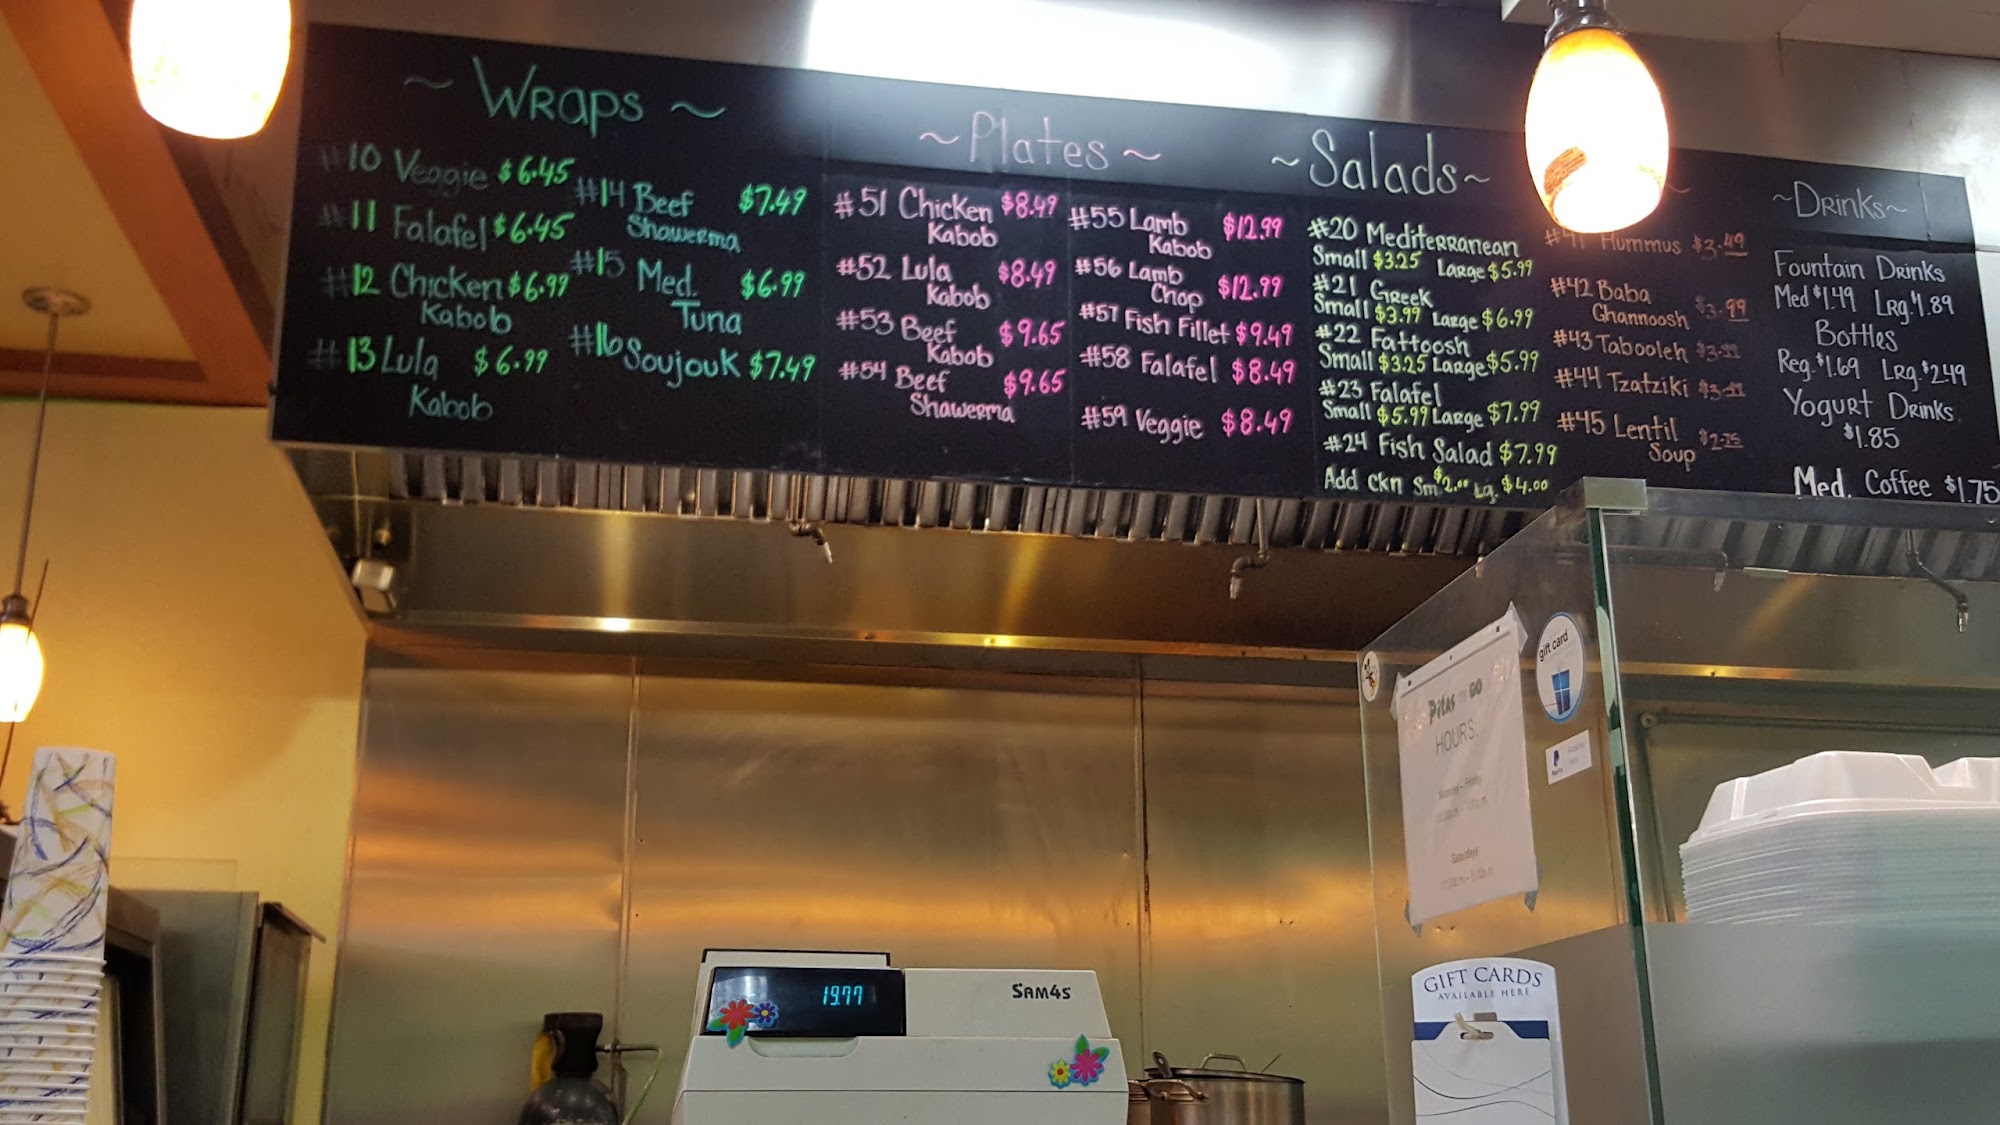 ~ Wraps ~
#10 Veggie $6.45
#11 Falafel $6.45
#12 Chicken $6.99
Kabob
#13 Lula $6.99
Kabob
#14 Beef $7.49
Shawerma
#15 Med. $6.99
Tuna
#16 Soujouk $7.49
~ Plates ~
#51 Chicken $8.49
Kabob
#52 Lula $8.49
Kabob
#53 Beef $9.65
Kabob
#54 Beef $9.65
Shawerma
#55 Lamb $12.99
Kabob
#56 Lamb $12.99
Chop
#57 Fish Fillet $9.49
#58 Falafel $8.49
#59 Veggie $8.49
~ Salads ~
#20 Mediterranean
Small $3.25 Large $5.99
#21 Greek
Small $3.99 Large $6.99
#22 Fattoosh
Small $3.25 Large $5.99
#23 Falafel
Small $5.99 Large $7.99
#24 Fish Salad $7.99
Add ckn Sm $2.00 Lg. $4.00
#41 Hummus $3.49
#42 Baba $3.99
Ghannoosh
#43 Tabooleh
#44 Tzatziki
#45 Lentil $2.75
Soup
~ Drinks ~
Fountain Drinks
Med $1.49 Lrg. $1.89
Bottles
Reg. $1.69 Lrg. $2.49
Yogurt Drinks
$1.85
Med. Coffee $1.75
Pitas GO
HOURS:
Monday - Friday
Saturdays
gift card
GIFT CARDS
AVAILABLE HERE
19.77
SAM4S